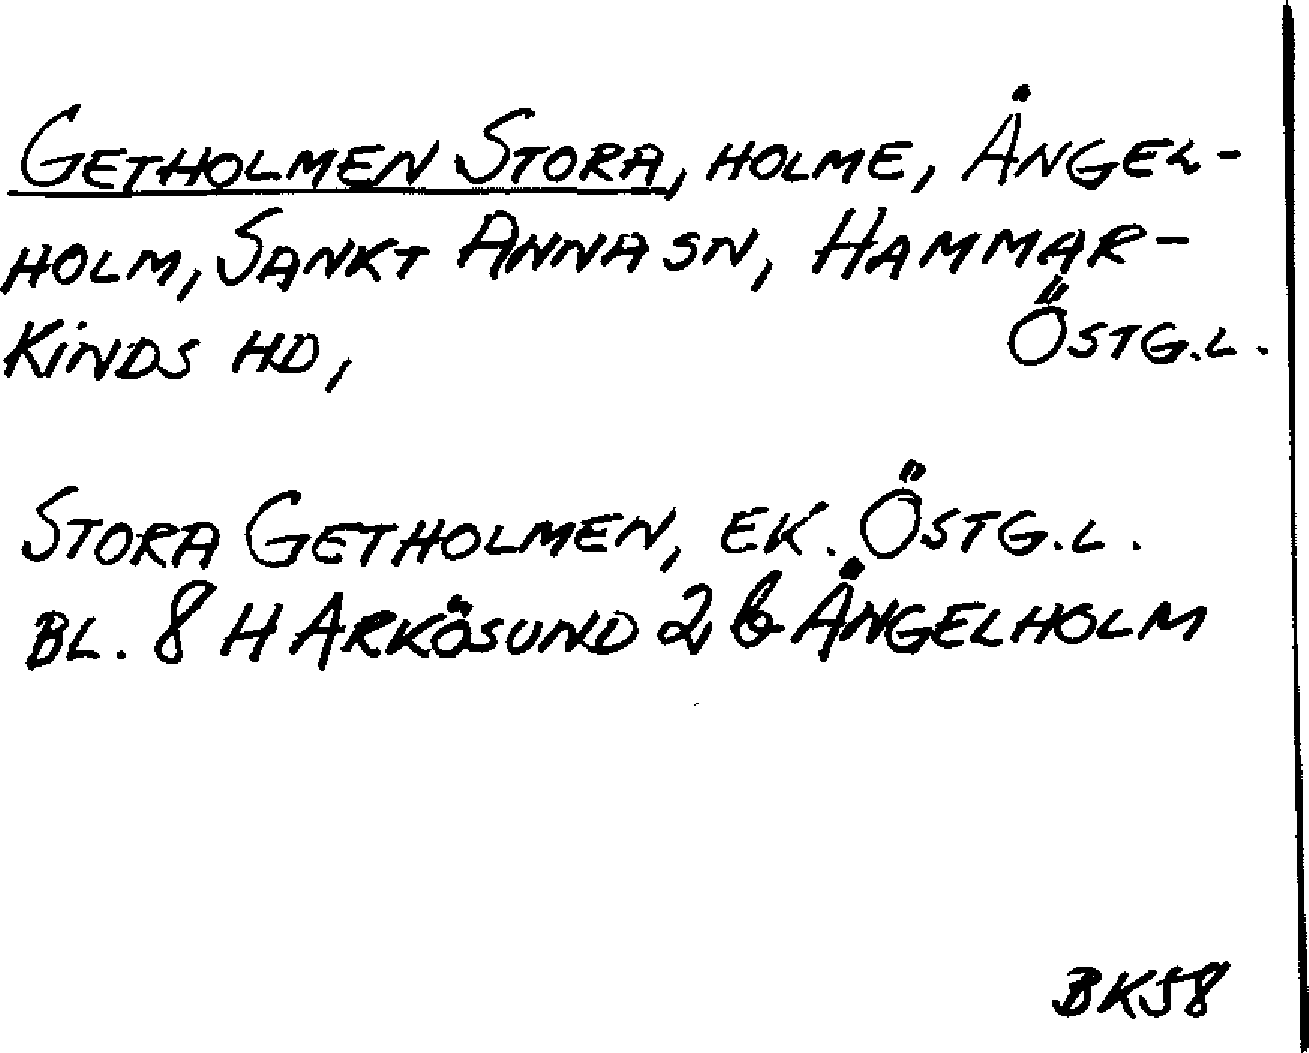 GETHOLMEN STORA, HOLME, ÅNGEL-
HOLM, SANKT ANNA SN, HAMMAR-
KINDS HD, ÖSTG.L.
STORA GETHOLMEN, EK. ÖSTG.L.
BL. 8 H ARKÖSUND 2 b ÅNGELHOLM
BK58